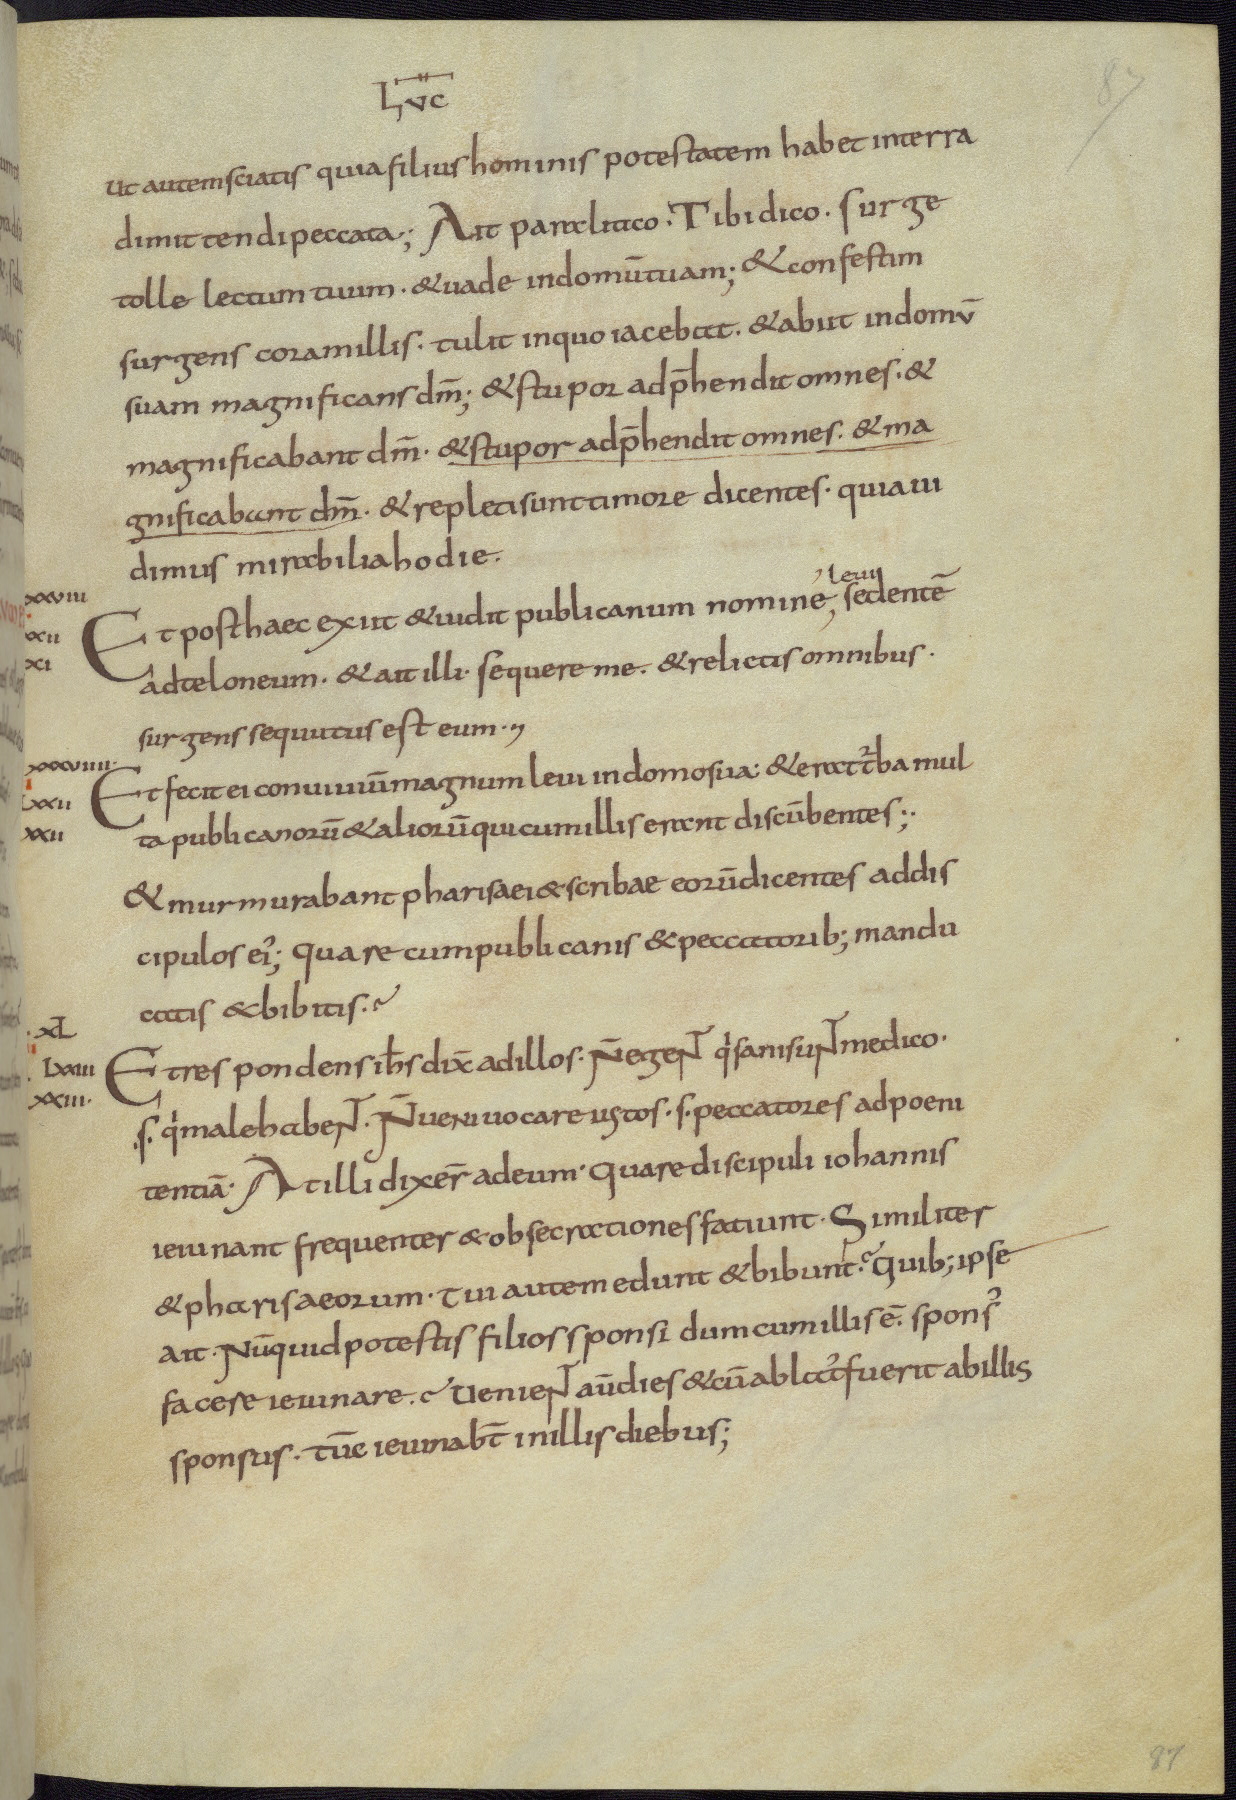 LVC
87
ut autem sciatis quia filius hominis potestatem habet in terra
dimittendi peccata·; Ait paralitico· Tibi dico· surge
tolle lectum tuum· & uade in domū tuam; & confestim
surgens coram illis· tulit in quo iacebat· & abiit in domū
suam magnificans dm̄; & stupor adp̄hendit omnes· &
magnificabant dm̄· & stupor adp̄hendit omnes· & ma
gnificabant dm̄· & repleti sunt timore dicentes· quia ui
dimus mirabilia hodie·
xxxviii
Et post haec exiit & uidit publicanum nomine, leui sedentē
xxii
xi
ad teloneum· & ait illi· sequere me· & relictis omnibus·
surgens sequutus est eum·,
xxxviiii·
Et fecit ei conuiuiū magnum leui in domo sua· & erat tᷣba mul
Lxxii
xxii
ta publicanorū & aliorū qui cum illis erant discūbentes;·
& murmurabant pharisaei & scribae eorū dicentes ad dis
cipulos ei᾽; quare cum publicanis & peccatorib; mandu
catis & bibitis·
·xL
Et respondens ih̄s dix̄ ad illos· N̄ egent qͥ sani sunt medico·
Lxxiii
xxiii·
·s· qͥ male habent· N̄ ueni uocare iustos· s· peccatores ad poeni
tentiā· At illi dixer̄ ad eum· quare discipuli iohannis
ieiunant frequenter & obsecrationes fatiunt· Similiter
& pharisaeorum· tui autem edunt & bibunt· Quib; ipse
ait· Nūquid potestis filios sponsi dum cum illis ē· spons᾽
facere ieiunare· Uenient aū dies & cū ablat᾽ fuerit ab illis
sponsus· tūc ieiunab̄t in illis diebus;
87